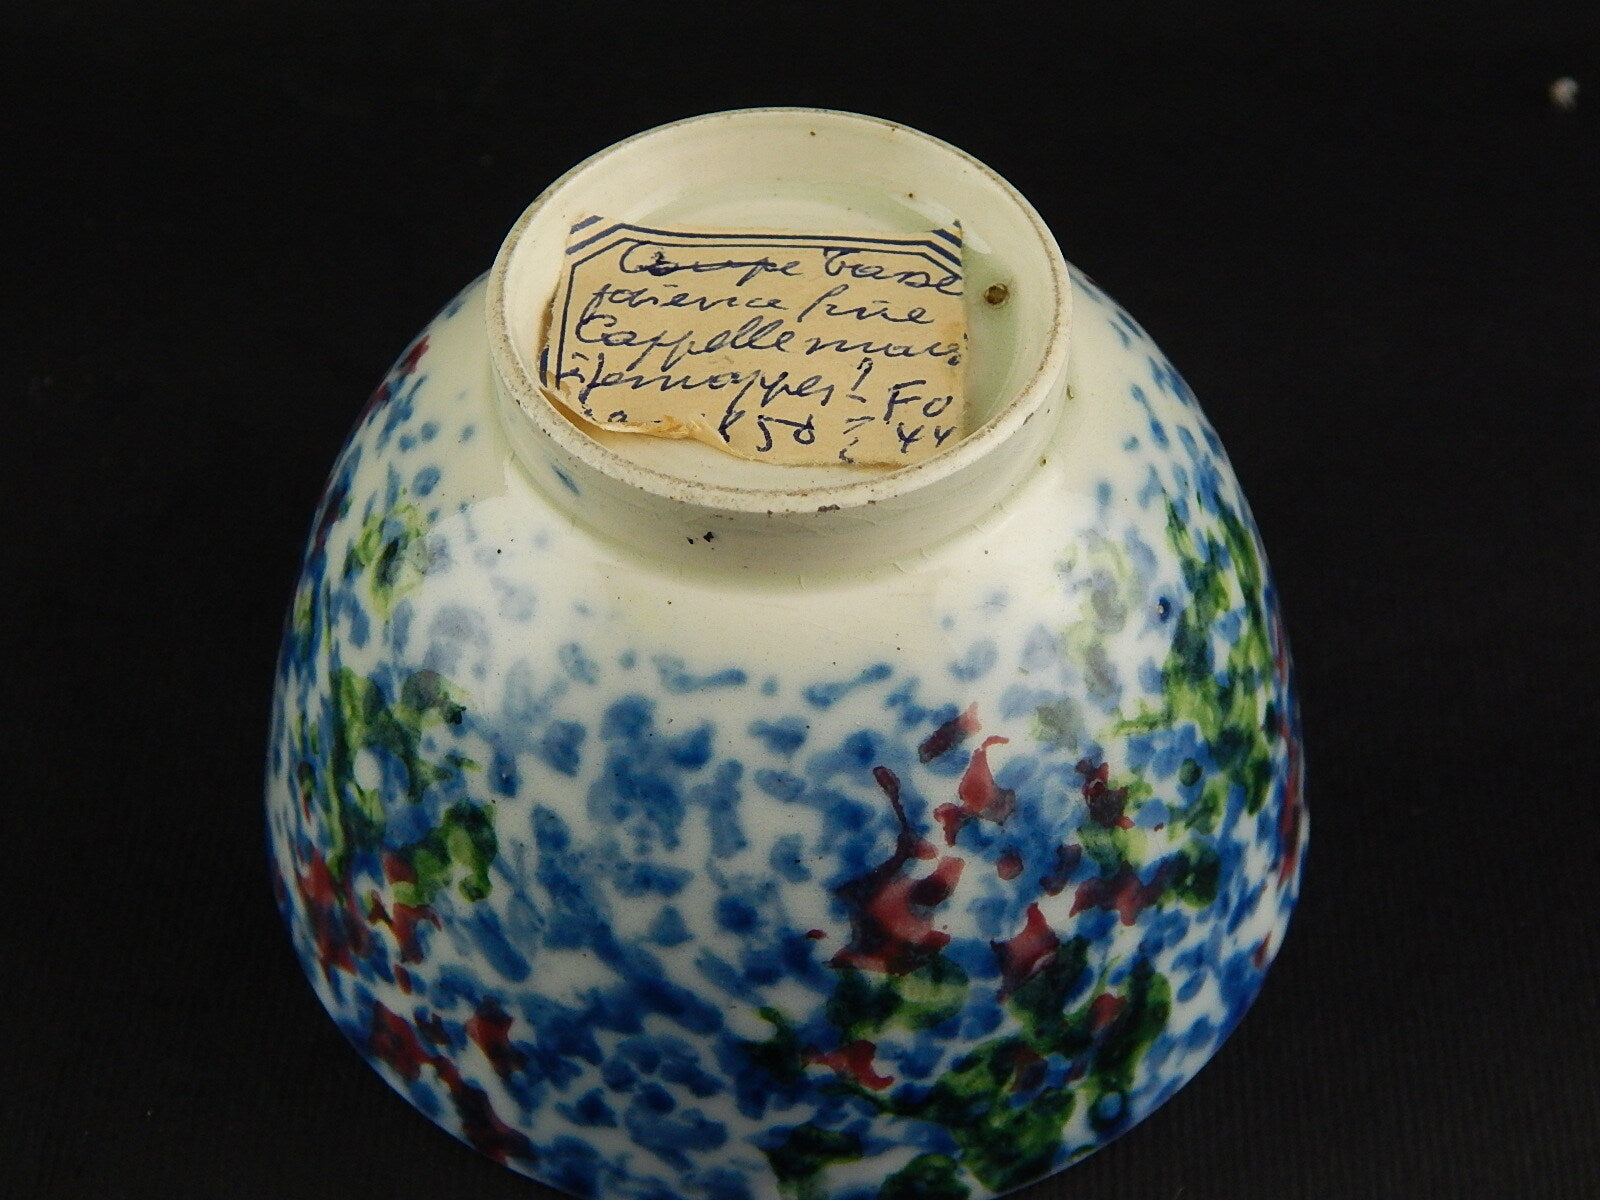 Coupe Tasse
faïence fine
Cappellemans
Jemappes? Fo
1850 ? 44